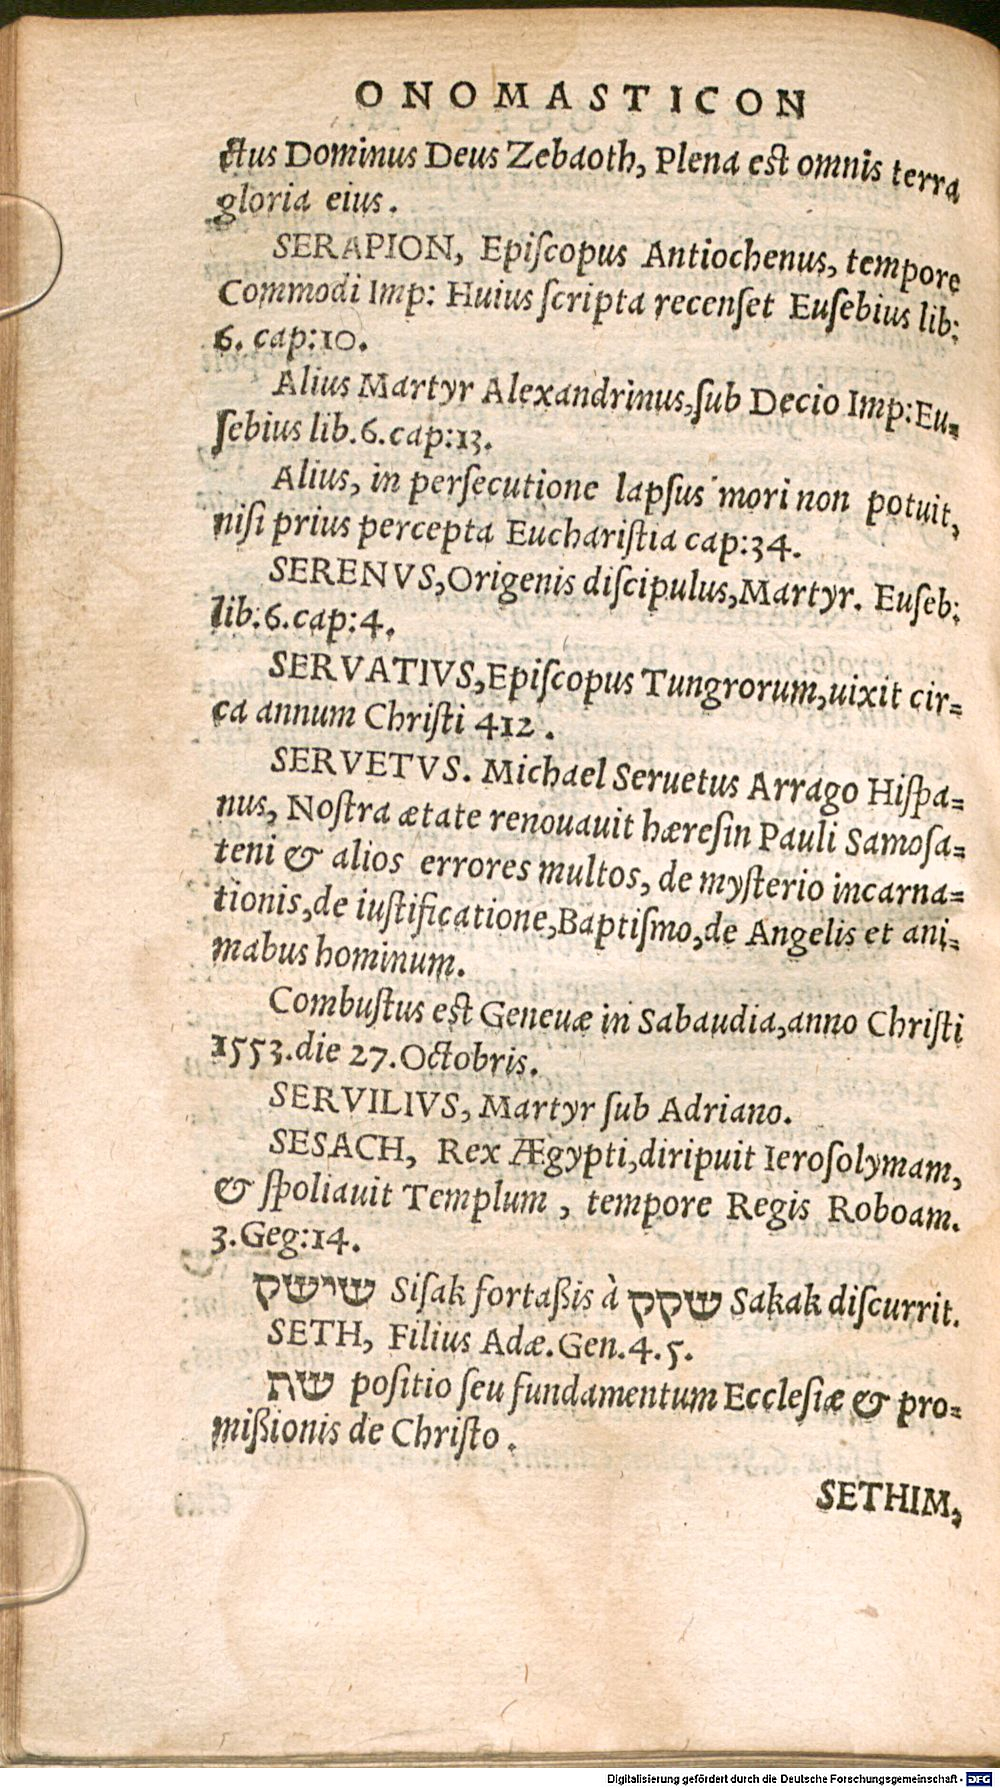 ONOMASTICON
ctus Dominus Deus Zebaoth, Plena est omnis terra
gloria eius.
SERAPION, Epiſcopus Antiochenus, tempore
Commodi Imp: Huius ſcripta recenſet Euſebius lib:
6. cap:10.
Alius Martyr Alexandrinus,ſub Decio Imp:Eu-
ſebius lib.6.cap:13.
Alius, in perſecutione lapſus mori non potuit,
niſi prius percepta Euchariſtia cap:34.
SERENVS,Origenis diſcipulus,Martyr. Euſeb:
lib:6.cap:4.
SERVATIVS,Epiſcopus Tungrorum,uixit cir-
ca annum Chriſti 412.
SERVETVS. Michael Seruetus Arrago Hiſpa-
nus, Noſtra ætate renouauit hæreſin Pauli Samoſa-
teni & alios errores multos, de myſterio incarna-
tionis,de iuſtificatione,Baptiſmo,de Angelis et ani-
mabus hominum.
Combuſtus eſt Geneuæ in Sabaudia,anno Chriſti
1553.die 27.Octobris.
SERVILIVS, Martyr ſub Adriano.
SESACH, Rex Ægypti,diripuit Ieroſolymam,
& ſpoliauit Templum, tempore Regis Roboam.
3.Geg:14.
שישק Siſak fortaßis à שקק Sakak diſcurrit.
SETH, Filius Adæ.Gen.4.5.
שת poſitio ſeu fundamentum Eccleſiæ & pro-
mißionis de Chriſto.
SETHIM,
Digitalisierung gefördert durch die Deutsche Forschungsgemeinschaft - DFG